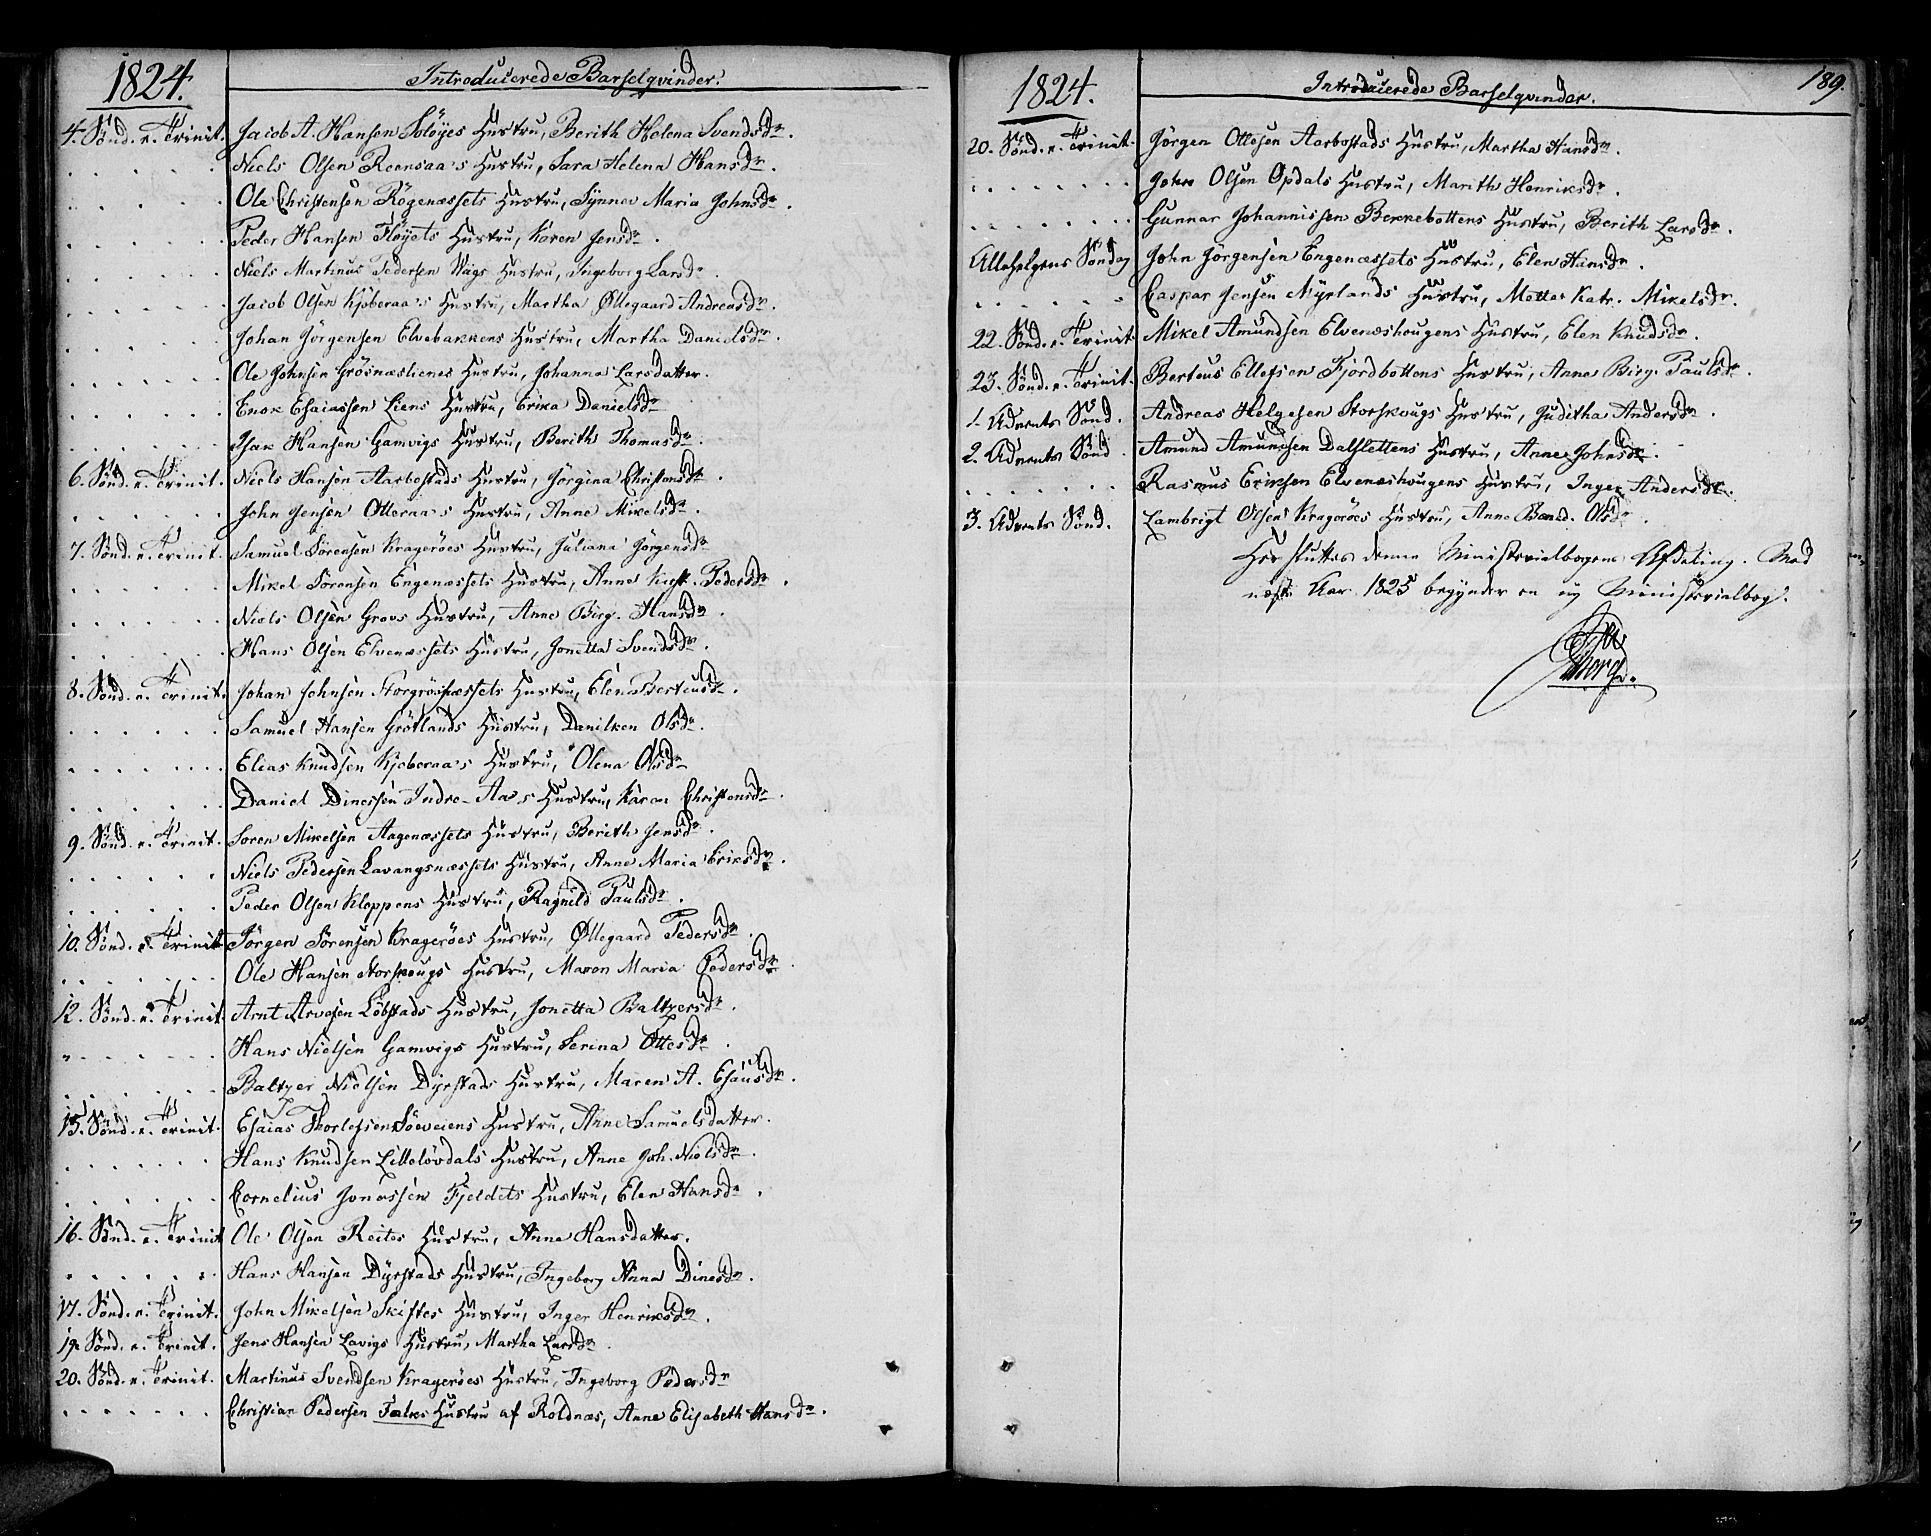 1824. Introducerede Barselqvinder.
4. Sönd. e. Trinit. Jacob A. Hansen Solöyes Hustru, Berith Helena Svendsdr.
Niels Olsen Reensaa's Hustru, Sara Helena Hansdr.
Ole Christensen Rögenæssets Hustru, Synnev Maria Johnsdr.
Peder Hansen Flöyets Hustru, Karen Jensdr.
Niels Martinus Pedersen Vigs Hustru, Ingeborg Larsdr.
Jacob Olsen Kjöberaa's Hustru, Martha Øllegaard Andreasdr.
Johan Jörgensen Elvebakkens Hustru, Martha Danielsdr.
Ole Johnsen Grösnæslienes Hustru, Johanna Larsdatter.
Enok Esaiassen Liens Hustru, Erika Danielsdr
Isak Hansen Gamvigs Hustru, Berith Thomasdr.
6. Sönd. e. Trinit. Niels Hansen Aarbostads Hustru, Jörgina Christensdr.
John Jensen Otteraa's Hustru, Anne Mikelsdr.
7. Sönd. e. Trinit. Samuel Sörensen Krageröes Hustru, Juliana Jörgensdr
Mikel Sörensen Engenæssets Hustru, Anne Kirst. Pedersdr.
Niels Olsen Grovs Hustru, Anne Birg. Hansdr.
Hans Olsen Elvenæssets Hustru, Jonetta Svendsdr.
8. Sönd. e. Trinit. Johan Johnsen Storgrösnæssets Hustru, Elen Berteusdr.
Samuel Hansen Grötlands Hustru, Danilken Olsdr.
Elias Knudsen Kjöberaa's Hustru, Olena Olsdr
Daniel Dinessen Indre-Aa's Hustru, Karen Christensdr.
9. Sönd. e. Trinit. Soren Mikelsen Aagenæssets Hustru, Berith Jensdr.
Niels Pedersen Lavangsnæssets Hustru, Anne Maria Eriksdr.
Peder Olsen Kloppens Hustru, Ragnild Paulsdr.
10. Sönd. e. Trinit. Jörgen Sörensen Krageröes Hustru, Øllegaard Pedersdr.
Ole Hansen Storskougs Hustru, Maren Maria Pedersdr.
12. Sönd. e. Trinit. Arnt Arvesen Löbstads Hustru, Jonetta Baltzersdr.
Hans Nielsen Gamvigs Hustru, Serina Ottesdr.
Baltzer Nielsen Dyrstads Hustru, Maren A. Esausdr.
15. Sönd. e. Trinit. Esaias Thorlefsen Söeveiens Hustru, Anne Samuelsdatter.
Hans Knudsen Lillelövdals Hustru, Anne Joh. Nielsdr.
Cornelius Jonassen Fjeldets Hustru, Elen Hansdr.
16. Sönd. e. Trinit Ole Olsen Reites Hustru, Anne Hansdatter.
Hans Hansen Dyrstads Hustru, Ingeborg Anna Dinesdr.
17. Sönd. e. Trinit. John Mikelsen Skiftes Hustru, Inger Henriksdr.
19. Sönd. e. Trinit. Jens Hansen Lavigs Hustru, Martha Larsdr.
20. Sönd. e. Trinit. Martinus Svendsen Krageröes Hustru, Ingeborg Pedersdr
Christian Pedersen Falks Hustru af Roldnæs, Anne Elisabeth Hansdr.
1824. Introducerede Barselqvinder. 189.
20. Sönd. e. Trinit. Jörgen Ottesen Aarbostads Hustru, Martha Hansdr.
John Olsen Opdals Hustru, Marith Henriksdr.
Gunnar Johannissen Berkebottens Hustru, Berith Larsdr.
Allehelgens Söndag John Jörgensen Engenæssets Hustru, Elen Hansdr.
Caspar Jensen Myrlands Hustru, Mette Katr. Mikelsdr.
22. Sönd. e. Trinit. Mikel Amundsen Elvenæshougens Hustru, Elen Knudsdr.
23. Sönd. e. Trinit. Berteus Ellefsen Fjordbottens Hustru, Anne Birg. Paulsdr.
1. Advents Sönd. Andreas Helgesen Storskougs Hustru, Juditha Andersdr.
2. Advents Sönd. Amund Amundsen Dalslettens Hustru, Anne Johnsdr.
Rasmus Eriksen Elvenæshougens Hustru, Inger Andersdr.
3. Advents Sönd. Lambrigt Olsen Krageröes Hustru, Anne Bened. Olsdr.
Her sluttes denne Ministerialbogens Afdeling. Med
næste Aar 1825 begynder en ny Ministerialbog.